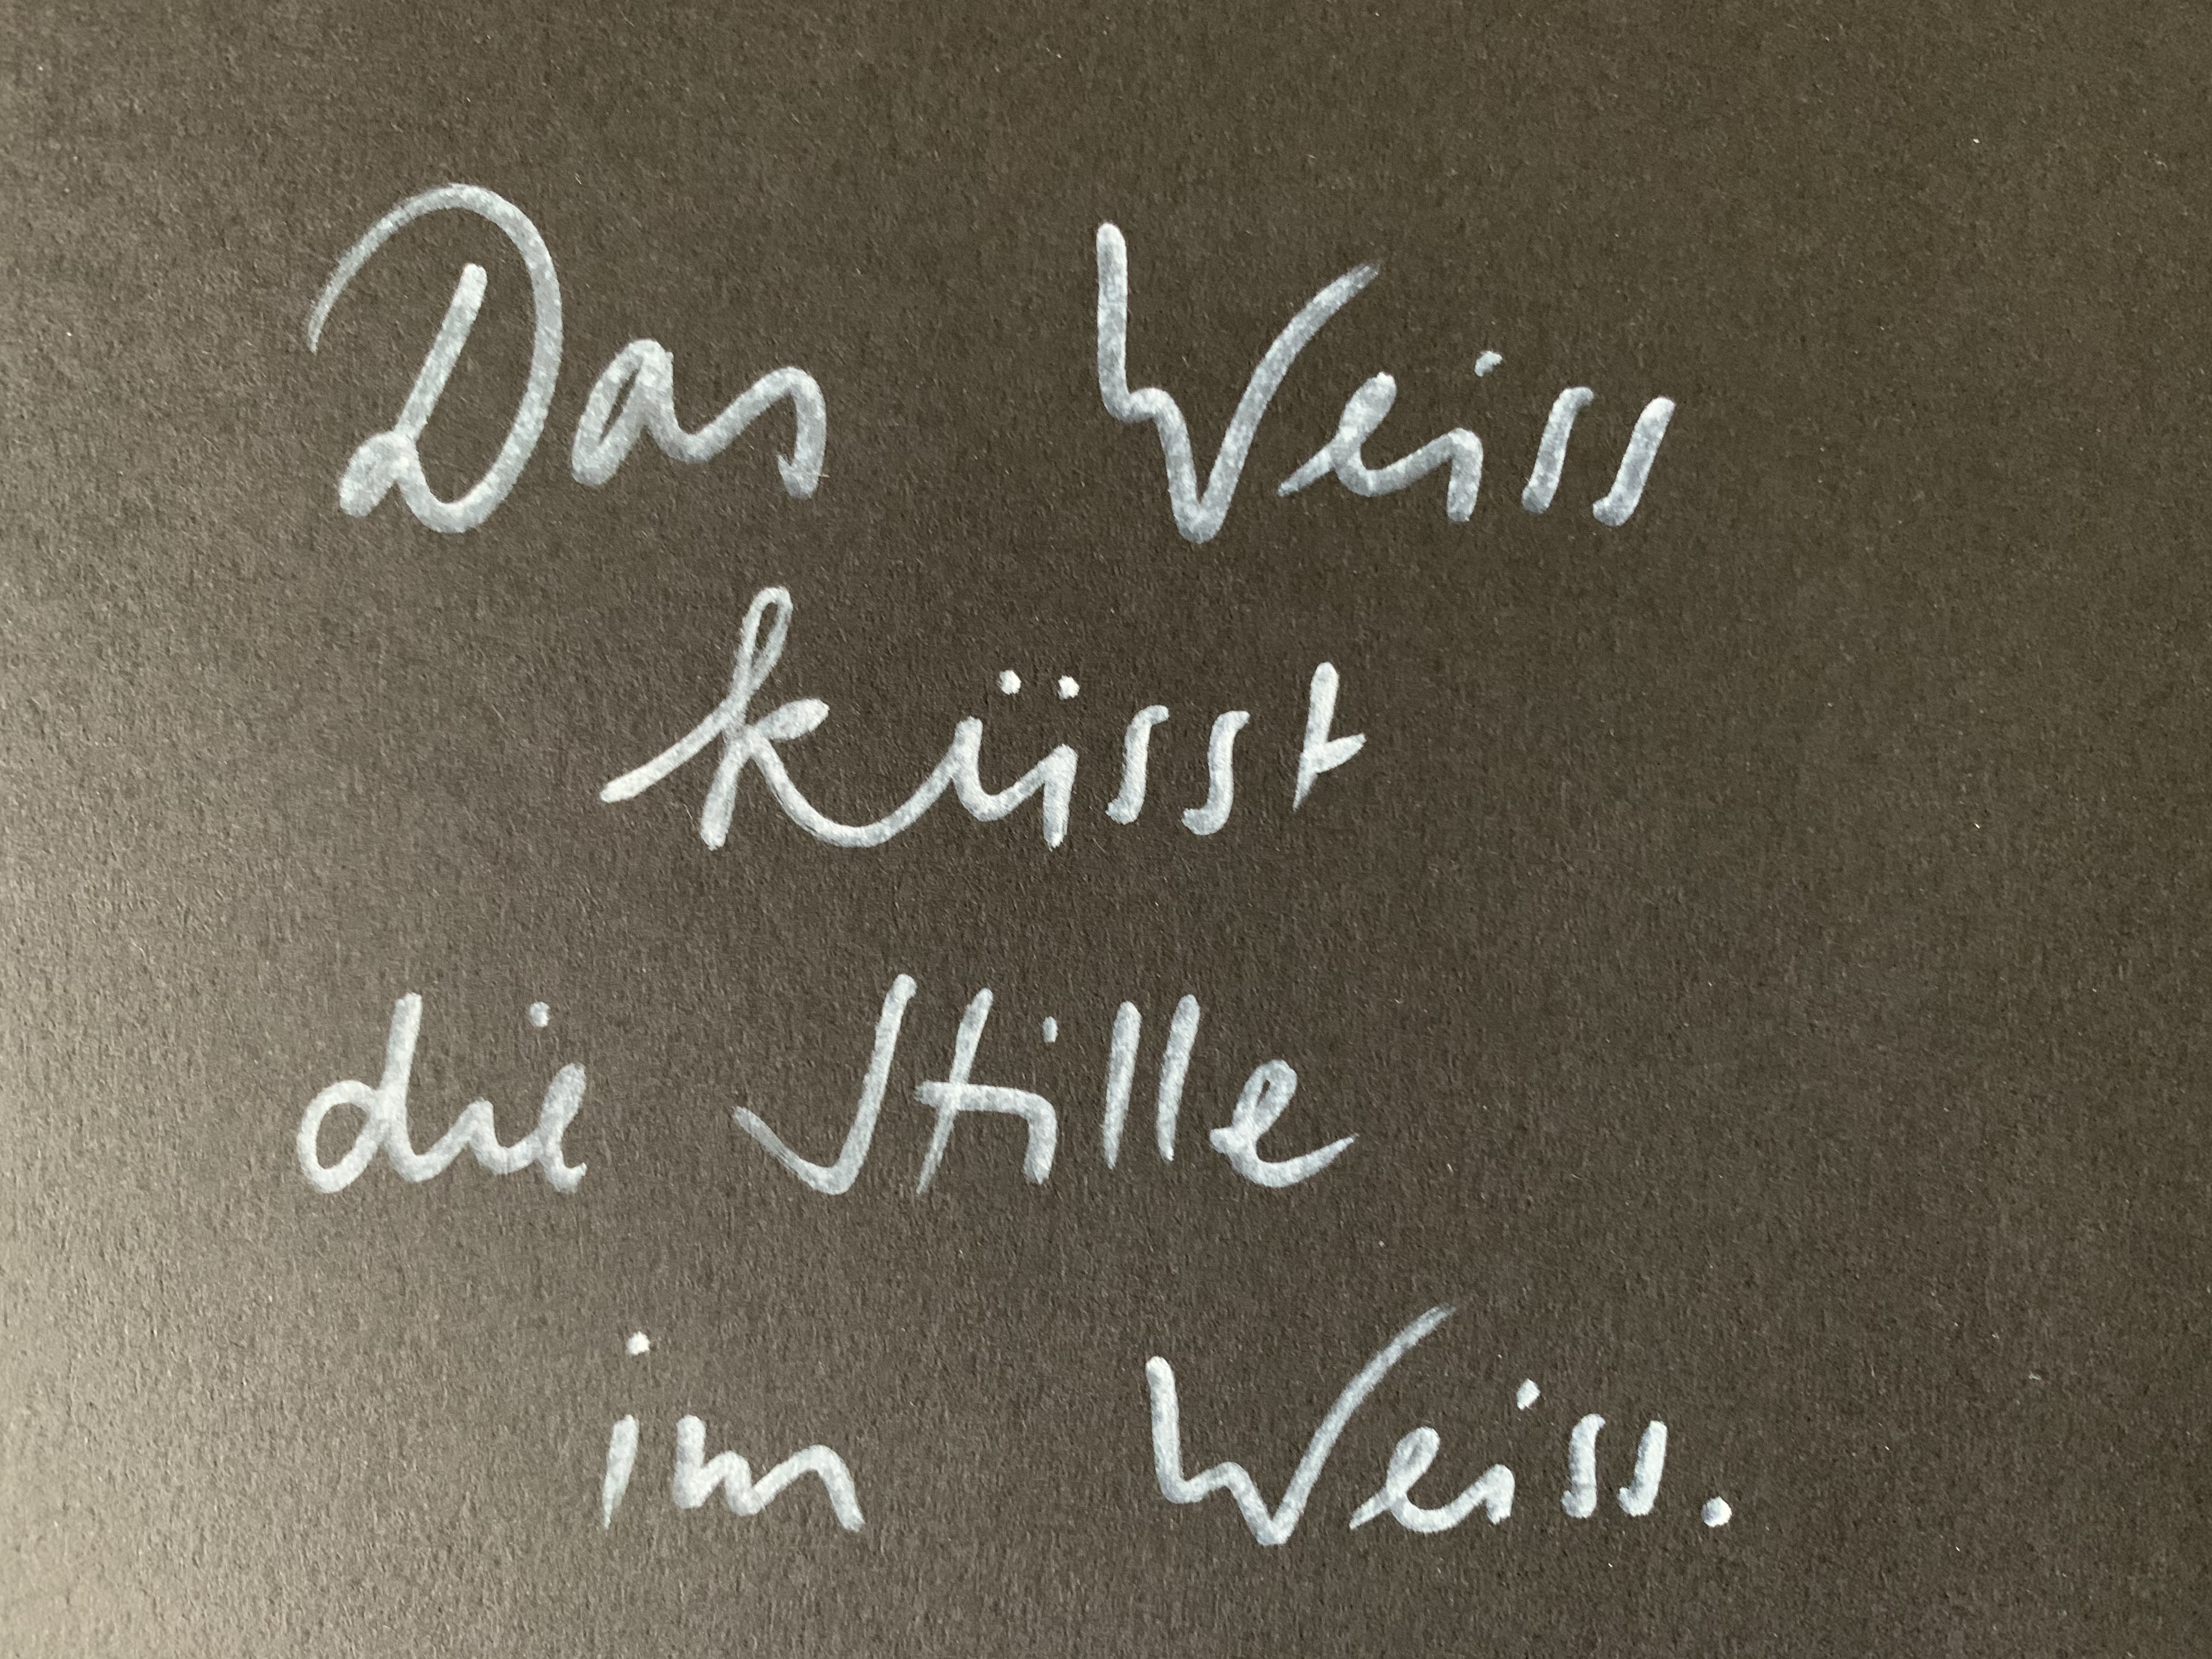 Das Weiss
küsst
die Stille
im Weiss.